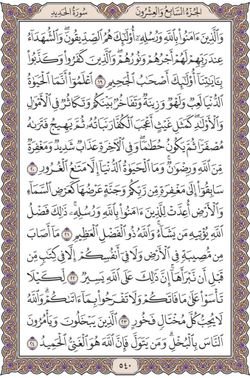 الجزء السابع والعشرون
سورة الحديد
والذين ءامنوا بالله ورسله أولئك هم الصديقون والشهداء
عند ربهم لهم أجرهم ونورهم والذين كفروا وكذبوا
بـايتنا أولئك أصحب الجحيم ١٩ اعلموا أنما الحيوة
الدنيا لعب ولهو وزينة وتفاخر بينكم وتكاثر في الأمول
والأولد كمثل غيث أعجب الكفار نباته ثم يهيج فترىه
مصفرا ثم يكون حطما وفي الأخرة عذاب شديد ومغفرة
من الله ورضون وما الحيوة الدنيا إلا متع الغرور ٢٠
سابقوا إلى مغفرة من ربكم وجنة عرضها كعرض السماء
والأرض أعدت للذين ءامنوا بالله ورسله ذلك فضل
الله يؤتيه من يشاء والله ذو الفضل العظيم ٢١ ما أصاب
من مصيبة في الأرض ولا في أنفسكم إلا في كتب من
قبل أن نبرأها إن ذلك على الله يسير ٢٢ لكيلا
تأسوا على ما فاتكم ولا تفرحوا بما ءاتىكم والله
لا يحب كل مختال فخور ٢٣ الذين يبخلون ويأمرون
الناس بالبخل ومن يتول فإن الله هو الغني الحميد ٢٤
٥٤٠